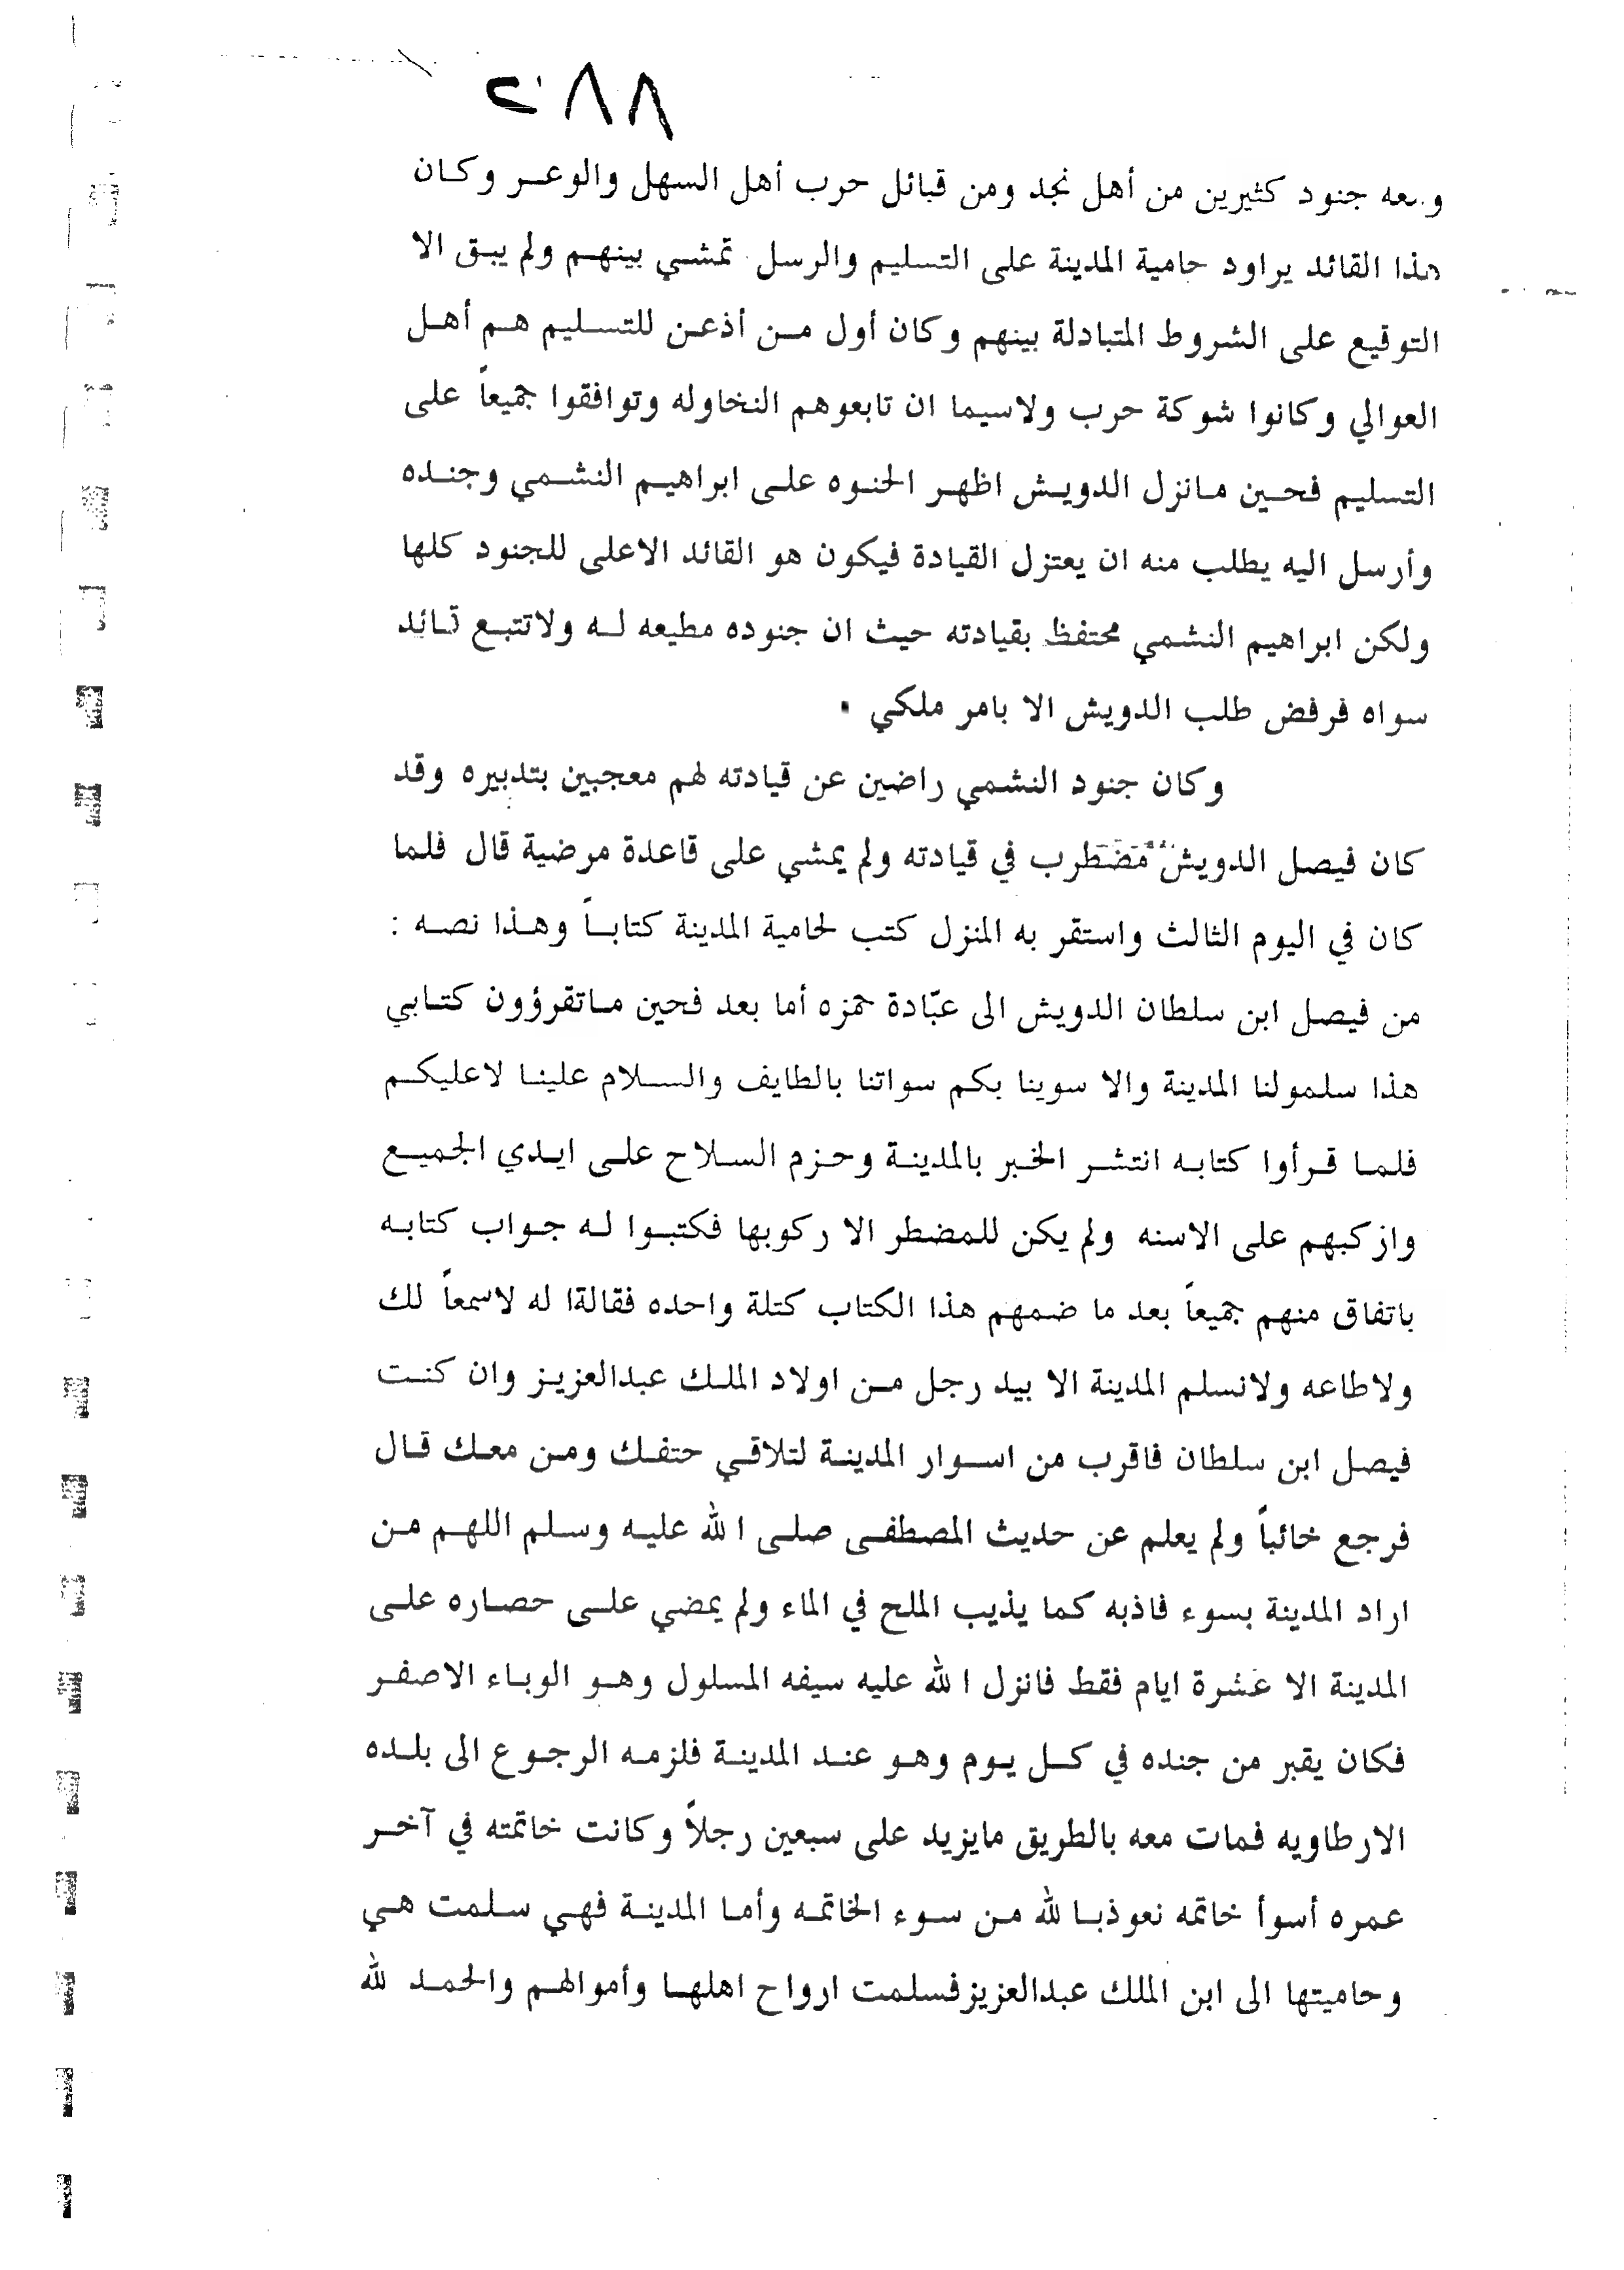 ومعه جنود كثيرين من أهل نجد ومن قبائل حرب أهل السهل والوعر وكان
هذا القائد يراود حامية المدينة على التسليم والرسل تمشي بينهم ولم يبق الا
التوقيع على الشروط المتبادلة بينهم وكان أول من أذعن للتسليم هم أهل
العوالي وكانوا شوكة حرب ولاسيما ان تابعوهم النخاوله وتوافقوا جميعاً على
التسليم فحين مانزل الدويش اظهر الخنوه على ابراهيم النشمي وجنده
وأرسل اليه يطلب منه ان يعتزل القيادة فيكون هو القائد الاعلى للجنود كلها
ولكن ابراهيم النشمي محتفظ بقيادته حيث ان جنوده مطيعه له ولاتتبع قائد
سواه فرفض طلب الدويش الا بامر ملكي .
وكان جنود النشمي راضين عن قيادته لهم معجبين بتدبيره وقد
كان فيصل الدويش مضطرب في قيادته ولم يمشي على قاعدة مرضية قال فلما
كان في اليوم الثالث واستقر به المنزل كتب لحامية المدينة كتاباً وهذا نصه :
من فيصل ابن سلطان الدويش الى عبّادة حمزه أما بعد فحين ماتقرؤون كتابي
هذا سلمولنا المدينة والا سوينا بكم سواتنا بالطايف والسلام علينا لاعليكم
فلما قرأوا كتابه انتشر الخبر بالمدينة وحزم السلاح على ايدي الجميع
واركبهم على الاسنه ولم يكن للمضطر الا ركوبها فكتبوا له جواب كتابه
باتفاق منهم جميعاً بعد ما ضمهم هذا الكتاب كتلة واحده فقالةا له لاسمعاً لك
ولاطاعه ولانسلم المدينة الا بيد رجل من اولاد الملك عبدالعزيز وان كنت
فيصل ابن سلطان فاقرب من اسوار المدينة لتلاقي حتفك ومن معك قال
فرجع خائباً ولم يعلم عن حديث المصطفى صلى الله عليه وسلم اللهم من
اراد المدينة بسوء فاذبه كما يذيب الملح في الماء ولم يمضي على حصاره على
المدينة الا عشرة ايام فقط فانزل الله عليه سيفه المسلول وهو الوباء الاصفر
فكان يقبر من جنده في كل يوم وهو عند المدينة فلزمه الرجوع الى بلده
الارطاويه فمات معه بالطريق مايزيد على سبعين رجلاً وكانت خاتمته في آخر
عمره أسوأ خاتمه نعوذبا لله من سوء الخاتمه وأما المدينة فهي سلمت هي
وحاميتها الى ابن الملك عبدالعزيزفسلمت ارواح اهلها وأموالهم والحمد لله